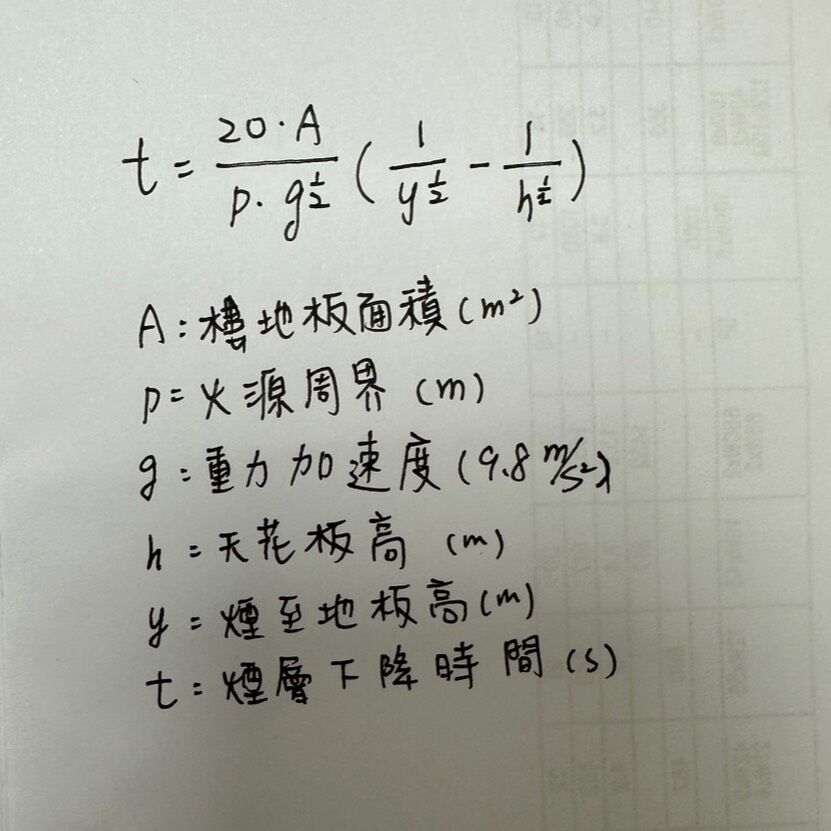 t = \frac{20 \cdot A}{p \cdot g^{\frac{1}{2}}} ( \frac{1}{y^{\frac{1}{2}}} - \frac{1}{h^{\frac{1}{2}}} )
A:樓地板面積(m²)
p=火源周界(m)
g:重力加速度(9.8 m/s²)
h=天花板高(m)
y=煙至地板高(m)
t:煙層下降時間(s)